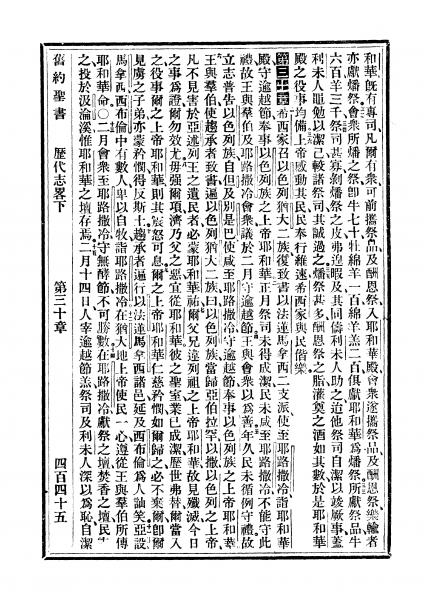 和華既有專司凡爾有衆可前攜祭品及酬恩祭入耶和華殿會衆遂攜祭品及酬恩祭樂輸者
亦獻燔祭會衆所燔之祭卽牛七十牡綿羊一百綿羊羔二百俱獻耶和華爲燔祭所獻祭品牛
六百羊三千祭司其寡剝燔祭之皮弗遑暇及其同儕利未人助之迨他祭司自潔以竣厥事蓋
利未人黽勉以潔己較諸祭司其誠過之燔祭甚多酬恩祭之脂灌奠之酒如其數於是耶和華
殿之役事均備上帝感動其民民奉行維速希西家與民偕樂
第三十章 希西家召以色列猶大二族復致書以法蓮馬拿西二支派使至耶路撒冷詣耶和華
殿守逾越節奉事以色列族之上帝耶和華正月祭司未得成潔民未咸至耶路撒冷不能守此
禮故王與羣伯及耶路撒冷會衆議於二月守逾越節王與會衆以爲善年久民未循例守禮故
立志普告以色列族自但及別是巴使咸至耶路撒冷守逾越節奉事以色列族之上帝耶和華
王與羣伯使趨承者致書遍以色列猶大二族曰以色列族當歸亞伯拉罕以撒以色列之上帝
凡不見害於亞述列王之遺民必蒙耶和華祐爾父兄違列祖之上帝耶和華故見殲滅今日
之事爲證爾勿效尤毋强爾項濟乃父之惡宜從耶和華彼之聖室業已成潔歷世弗替爾當入
之役事爾之上帝耶和華則其震怒可息爾之上帝耶和華仁慈矜憫如爾歸之必不棄爾卽爾
見虜之子弟亦蒙矜憫得反斯土趨承者遍行以法蓮馬拿西諸邑延及西布倫爲人訕笑亞設
馬拿西西布倫中有數人卑以自牧詣耶路撒冷在猶大地上帝使民一心遵從王與羣伯所傳
耶和華命○二月會衆至耶路撒冷守無酵節不可勝數在耶路撒冷獻祭之壇焚香之壇民
之投於汲淪溪惟耶和華之壇存焉二月十四日人宰逾越節羔祭司及利未人深以爲恥自潔
舊約聖書 歷代志畧下 第三十章 四百四十五